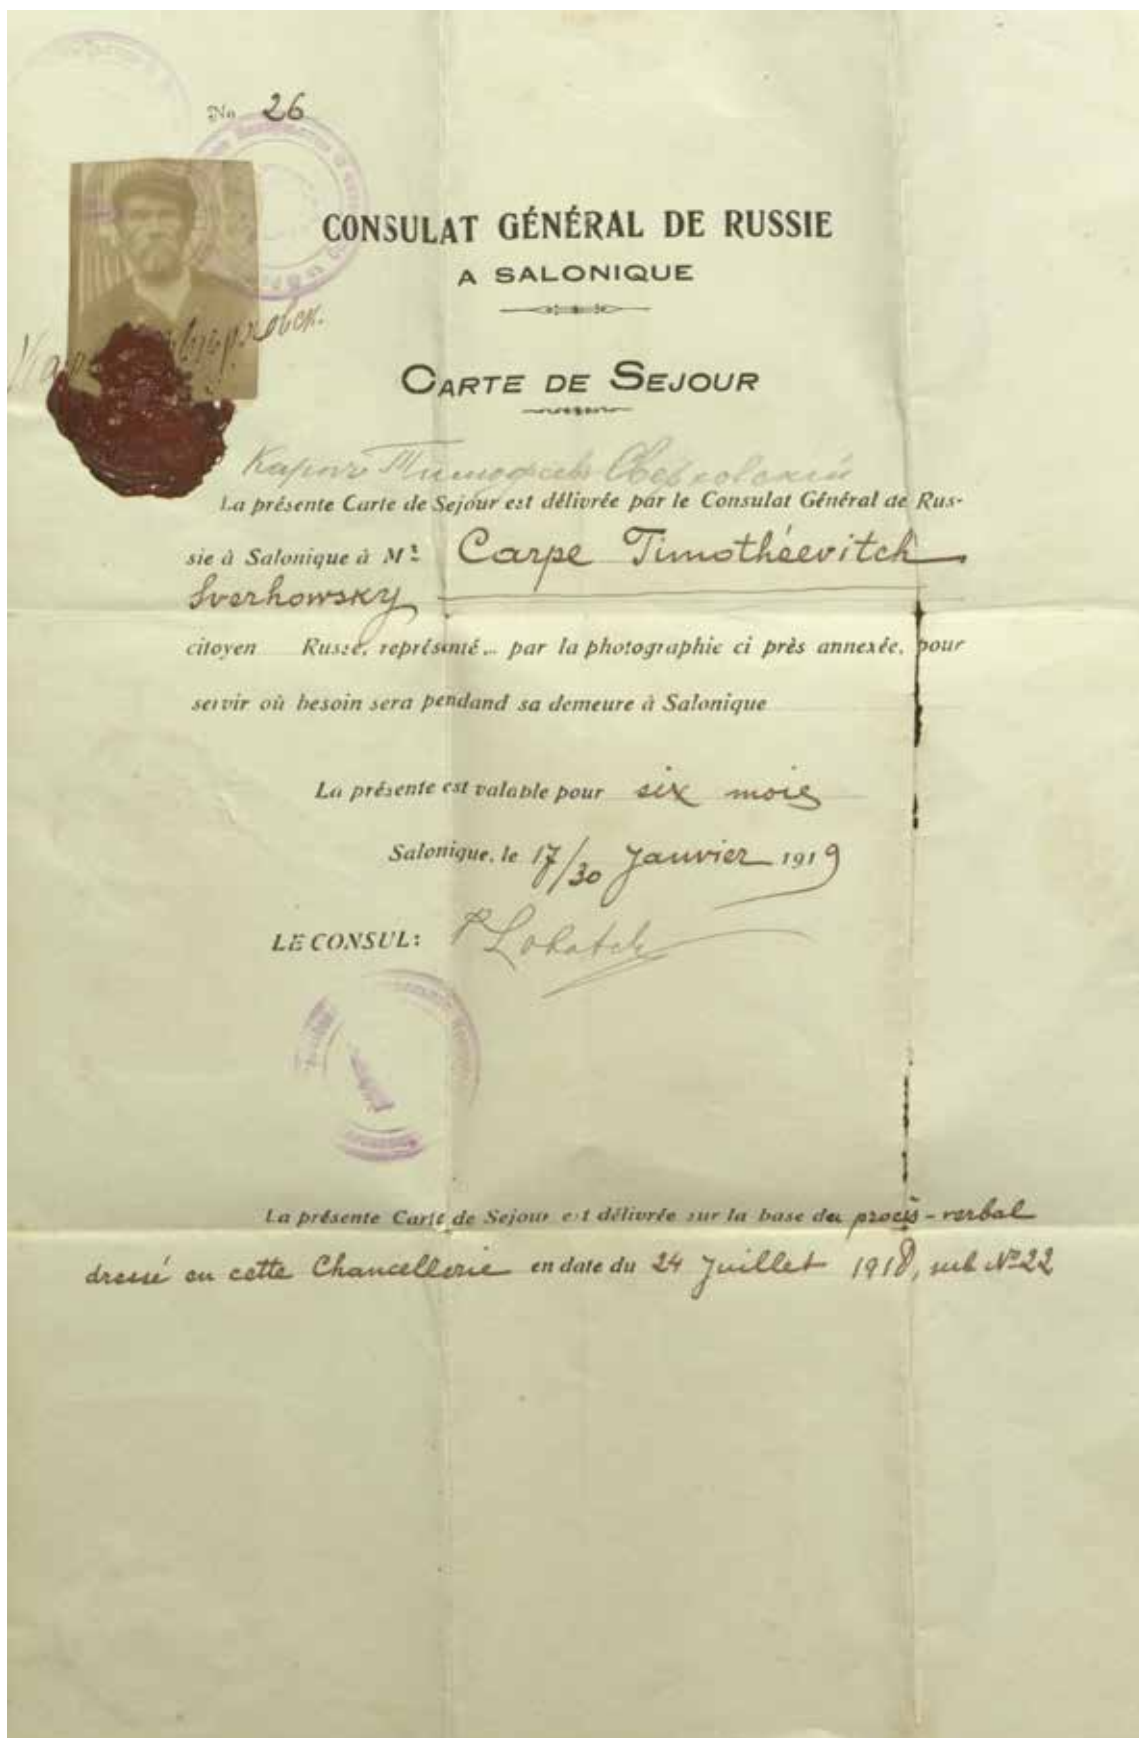 No 26
CONSULAT GÉNÉRAL DE RUSSIE
A SALONIQUE
CARTE DE SEJOUR
Карпъ Тимофеевъ Сверховский
La présente Carte de Sejour est délivrée par le Consulat Général de Rus-
sie à Salonique à Mr Carpe Timothéevitch
Sverhowsky
citoyen Russe, représenté... par la photographie ci près annexée, pour
servir où besoin sera pendand sa demeure à Salonique
La présente est valable pour six mois
Salonique, le 17/30 Janvier 1919
LE CONSUL:
La présente Carte de Sejour est délivrée sur la base du procès-verbal
dressé en cette Chancellerie en date du 24 Juillet 1918, sub No 22